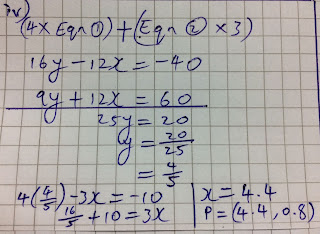 (4 x Eqn ①) + (Eqn ② x 3)
16y - 12x = -40
9y + 12x = 60
25y = 20
y = 20/25
= 4/5
4(4/5) - 3x = -10
16/5 + 10 = 3x
x = 4.4
P = (4.4, 0.8)